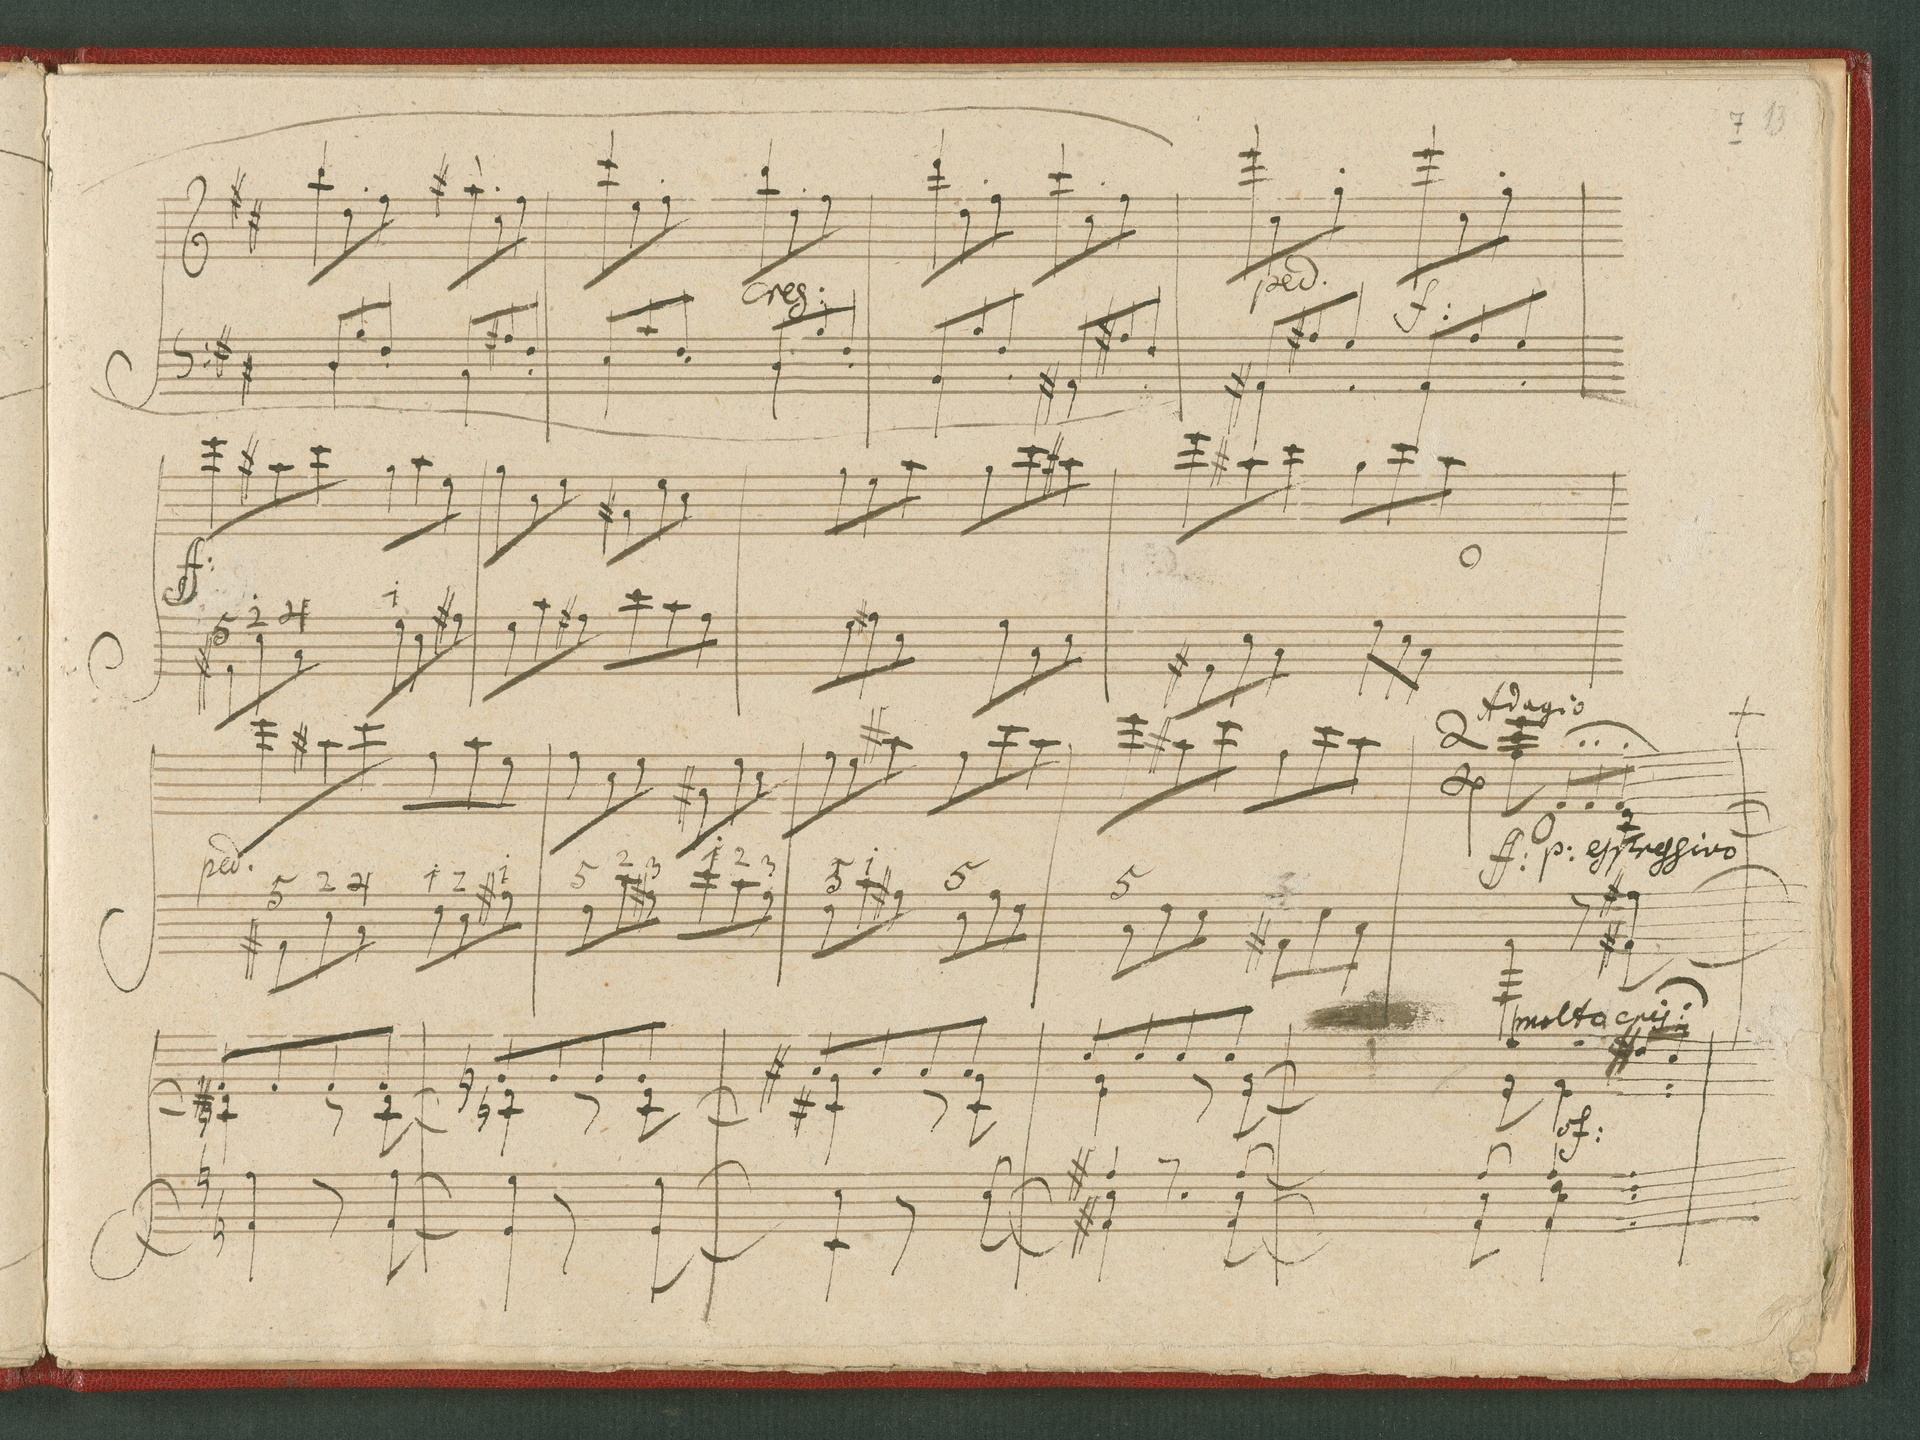 7 13
cres:
ped. f:
ff:
5 2 4 1
Adagio
2
4
ff: p: espressivo
ped.
5 2 4 1 2 1 5 2 3 1 2 3 5 1 5 5
molto cres:
sf: